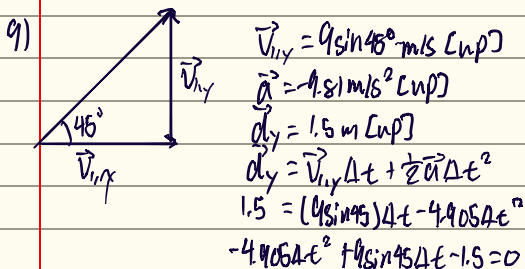 9)
V⃗₁,y = 9sin45° m/s [up]
a⃗ = -9.81 m/s² [up]
V⃗₁,y
d⃗y = 1.5 m [up]
45°
d⃗y = V⃗₁,y Δt + ½ a⃗ Δt²
V⃗₁,x
1.5 = (9sin45)Δt - 4.905Δt²
-4.905Δt² + 9sin45Δt - 1.5 = 0